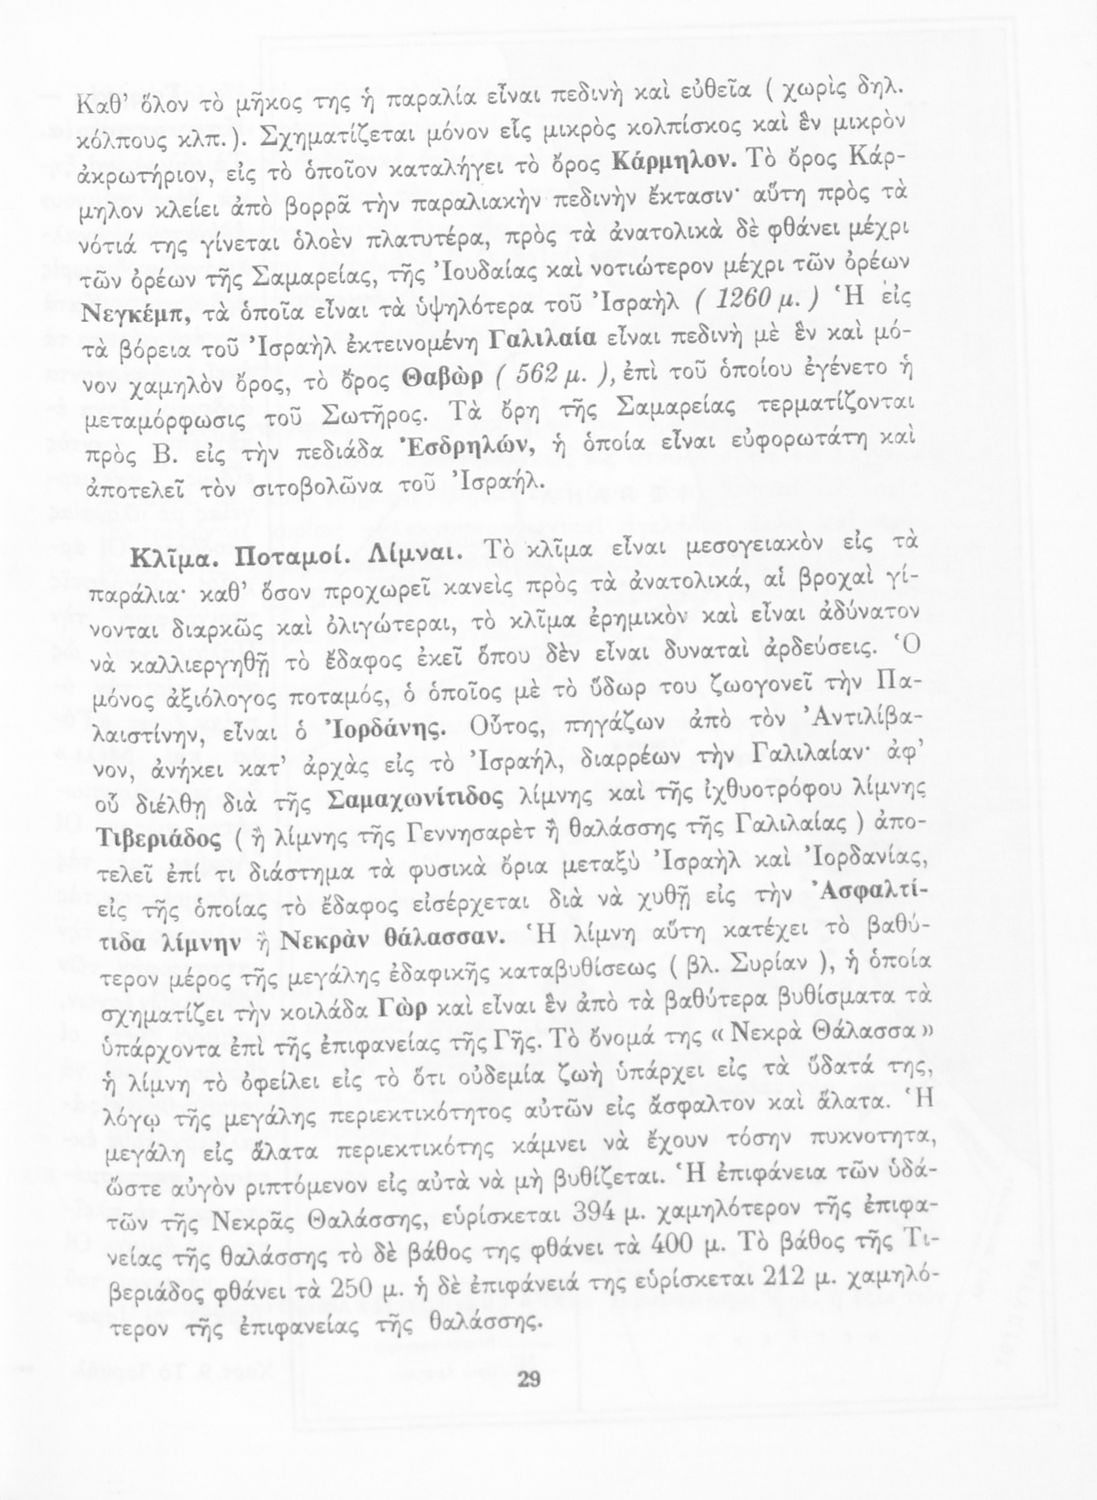 Καθ’ ὅλον τὸ μῆκος της ἡ παραλία εἶναι πεδινὴ καὶ εὐθεῖα ( χωρὶς δηλ.
κόλπους κλπ. ). Σχηματίζεται μόνον εἷς μικρὸς κολπίσκος καὶ ἓν μικρὸν
ἀκρωτήριον, εἰς τὸ ὁποῖον καταλήγει τὸ ὄρος Κάρμηλον. Τὸ ὄρος Κάρ-
μηλον κλείει ἀπὸ βορρᾶ τὴν παραλιακὴν πεδινὴν ἔκτασιν· αὕτη πρὸς τὰ
νότιά της γίνεται ὁλοὲν πλατυτέρα, πρὸς τὰ ἀνατολικὰ δὲ φθάνει μέχρι
τῶν ὀρέων τῆς Σαμαρείας, τῆς Ἰουδαίας καὶ νοτιώτερον μέχρι τῶν ὀρέων
Νεγκέμπ, τὰ ὁποῖα εἶναι τὰ ὑψηλότερα τοῦ Ἰσραὴλ ( 1260 μ. ) Ἡ εἰς
τὰ βόρεια τοῦ Ἰσραὴλ ἐκτεινομένη Γαλιλαία εἶναι πεδινὴ μὲ ἓν καὶ μό-
νον χαμηλὸν ὄρος, τὸ ὄρος Θαβὼρ ( 562 μ. ), ἐπὶ τοῦ ὁποίου ἐγένετο ἡ
μεταμόρφωσις τοῦ Σωτῆρος. Τὰ ὄρη τῆς Σαμαρείας τερματίζονται
πρὸς Β. εἰς τὴν πεδιάδα Ἐσδρηλών, ἡ ὁποία εἶναι εὐφορωτάτη καὶ
ἀποτελεῖ τὸν σιτοβολῶνα τοῦ Ἰσραήλ.
Κλῖμα. Ποταμοί. Λίμναι. Τὸ κλῖμα εἶναι μεσογειακὸν εἰς τὰ
παράλια· καθ’ ὅσον προχωρεῖ κανεὶς πρὸς τὰ ἀνατολικά, αἱ βροχαὶ γί-
νονται διαρκῶς καὶ ὀλιγώτεραι, τὸ κλῖμα ἐρημικὸν καὶ εἶναι ἀδύνατον
νὰ καλλιεργηθῇ τὸ ἔδαφος ἐκεῖ ὅπου δὲν εἶναι δυναταὶ ἀρδεύσεις. Ὁ
μόνος ἀξιόλογος ποταμός, ὁ ὁποῖος μὲ τὸ ὕδωρ του ζωογονεῖ τὴν Πα-
λαιστίνην, εἶναι ὁ Ἰορδάνης. Οὗτος, πηγάζων ἀπὸ τὸν Ἀντιλίβα-
νον, ἀνήκει κατ’ ἀρχὰς εἰς τὸ Ἰσραήλ, διαρρέων τὴν Γαλιλαίαν· ἀφ’
οὗ διέλθῃ διὰ τῆς Σαμαχωνίτιδος λίμνης καὶ τῆς ἰχθυοτρόφου λίμνης
Τιβεριάδος ( ἢ λίμνης τῆς Γεννησαρὲτ ἢ θαλάσσης τῆς Γαλιλαίας ) ἀπο-
τελεῖ ἐπί τι διάστημα τὰ φυσικὰ ὅρια μεταξὺ Ἰσραὴλ καὶ Ἰορδανίας,
εἰς τῆς ὁποίας τὸ ἔδαφος εἰσέρχεται διὰ νὰ χυθῇ εἰς τὴν Ἀσφαλτί-
τιδα λίμνην ἢ Νεκρὰν θάλασσαν. Ἡ λίμνη αὕτη κατέχει τὸ βαθύ-
τερον μέρος τῆς μεγάλης ἐδαφικῆς καταβυθίσεως ( βλ. Συρίαν ), ἡ ὁποία
σχηματίζει τὴν κοιλάδα Γὼρ καὶ εἶναι ἓν ἀπὸ τὰ βαθύτερα βυθίσματα τὰ
ὑπάρχοντα ἐπὶ τῆς ἐπιφανείας τῆς Γῆς. Τὸ ὄνομά της « Νεκρὰ Θάλασσα »
ἡ λίμνη τὸ ὀφείλει εἰς τὸ ὅτι οὐδεμία ζωὴ ὑπάρχει εἰς τὰ ὕδατά της,
λόγῳ τῆς μεγάλης περιεκτικότητος αὐτῶν εἰς ἄσφαλτον καὶ ἅλατα. Ἡ
μεγάλη εἰς ἅλατα περιεκτικότης κάμνει νὰ ἔχουν τόσην πυκνοτητα,
ὥστε αὐγὸν ριπτόμενον εἰς αὐτὰ νὰ μὴ βυθίζεται. Ἡ ἐπιφάνεια τῶν ὑδά-
των τῆς Νεκρᾶς Θαλάσσης, εὑρίσκεται 394 μ. χαμηλότερον τῆς ἐπιφα-
νείας τῆς θαλάσσης τὸ δὲ βάθος της φθάνει τὰ 400 μ. Τὸ βάθος τῆς Τι-
βεριάδος φθάνει τὰ 250 μ. ἡ δὲ ἐπιφάνειά της εὑρίσκεται 212 μ. χαμηλό-
τερον τῆς ἐπιφανείας τῆς θαλάσσης.
29